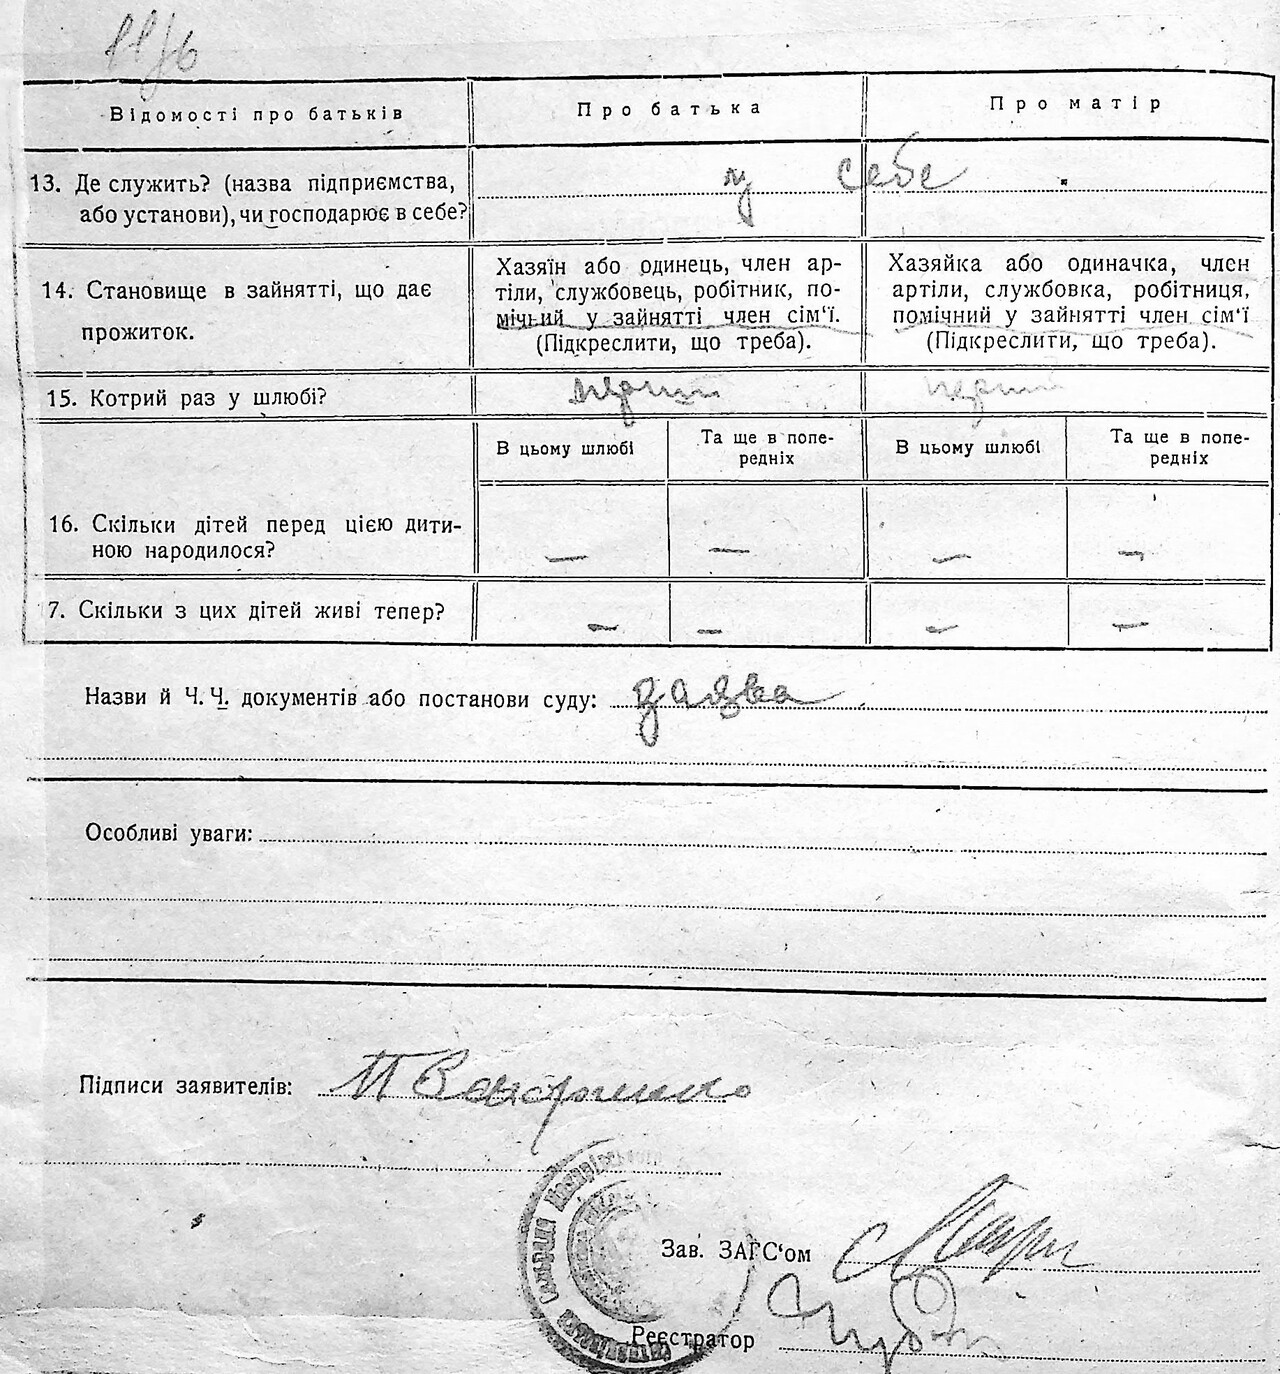 Відомості про батьків
Про батька
Про матір
13. Де служить? (назва підприємства,
або установи), чи господарює в себе?
у себе
14. Становище в зайнятті, що дає
прожиток.
Хазяїн або одинець, член ар-
тіли, службовець, робітник, по-
мічний у зайнятті член сім‘ї.
(Підкреслити, що треба).
Хазяйка або одиначка, член
артіли, службовка, робітниця,
помічний у зайнятті член сім‘ї
(Підкреслити, що треба).
15. Котрий раз у шлюбі?
перший
перший
В цьому шлюбі
Та ще в попе-
редніх
В цьому шлюбі
Та ще в попе-
редніх
16. Скільки дітей перед цією дити-
ною народилося?
— — — —
7. Скільки з цих дітей живі тепер?
— — — —
Назви й Ч. Ч. документів або постанови суду: заява
Особливі уваги:
Підписи заявителів:
Зав. ЗАГС‘ом
Реєстратор